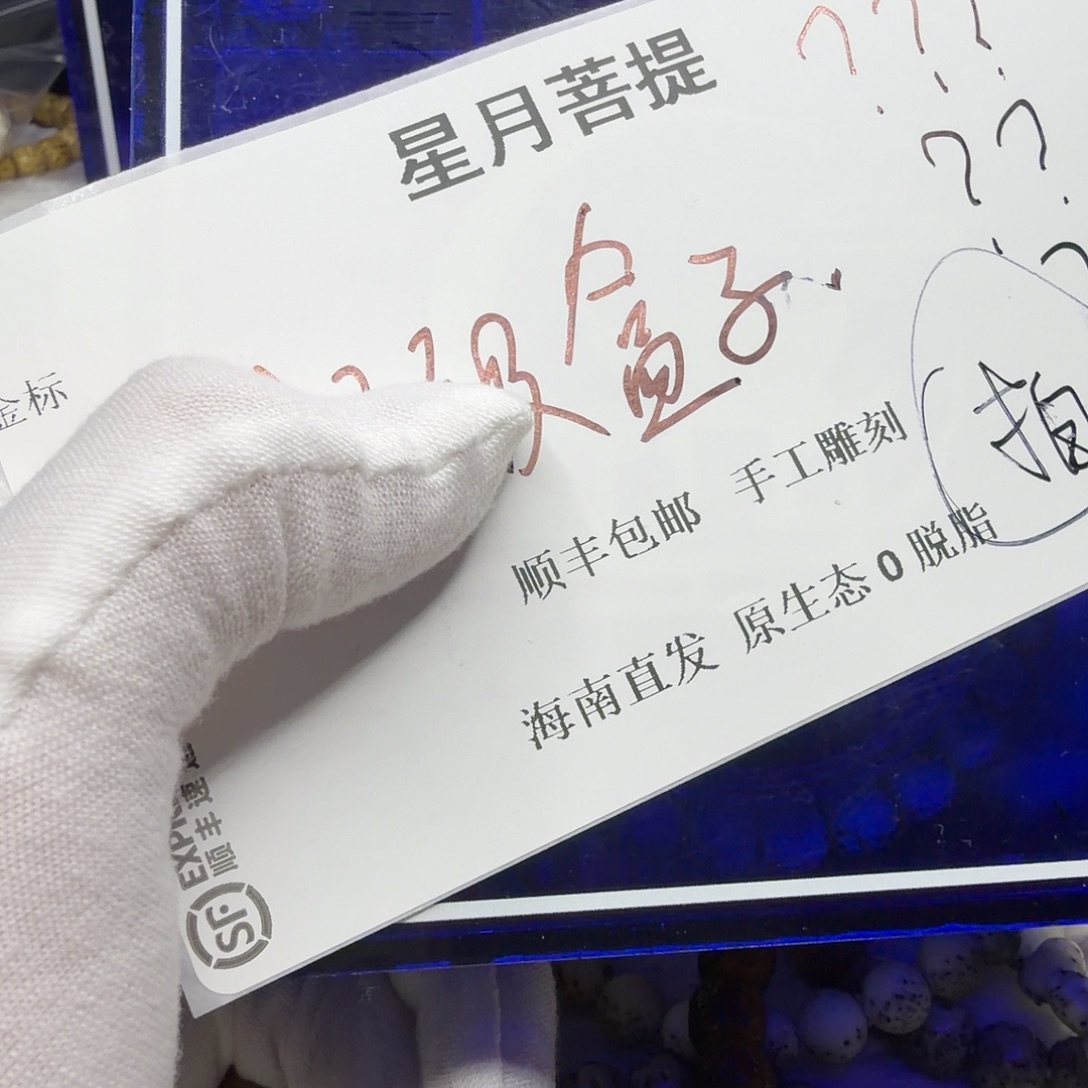 星月菩提
? ? ?
? ?
?
盒子
金标
指
顺丰包邮 手工雕刻
海南直发 原生态0脱脂
顺丰速
EXP
SF